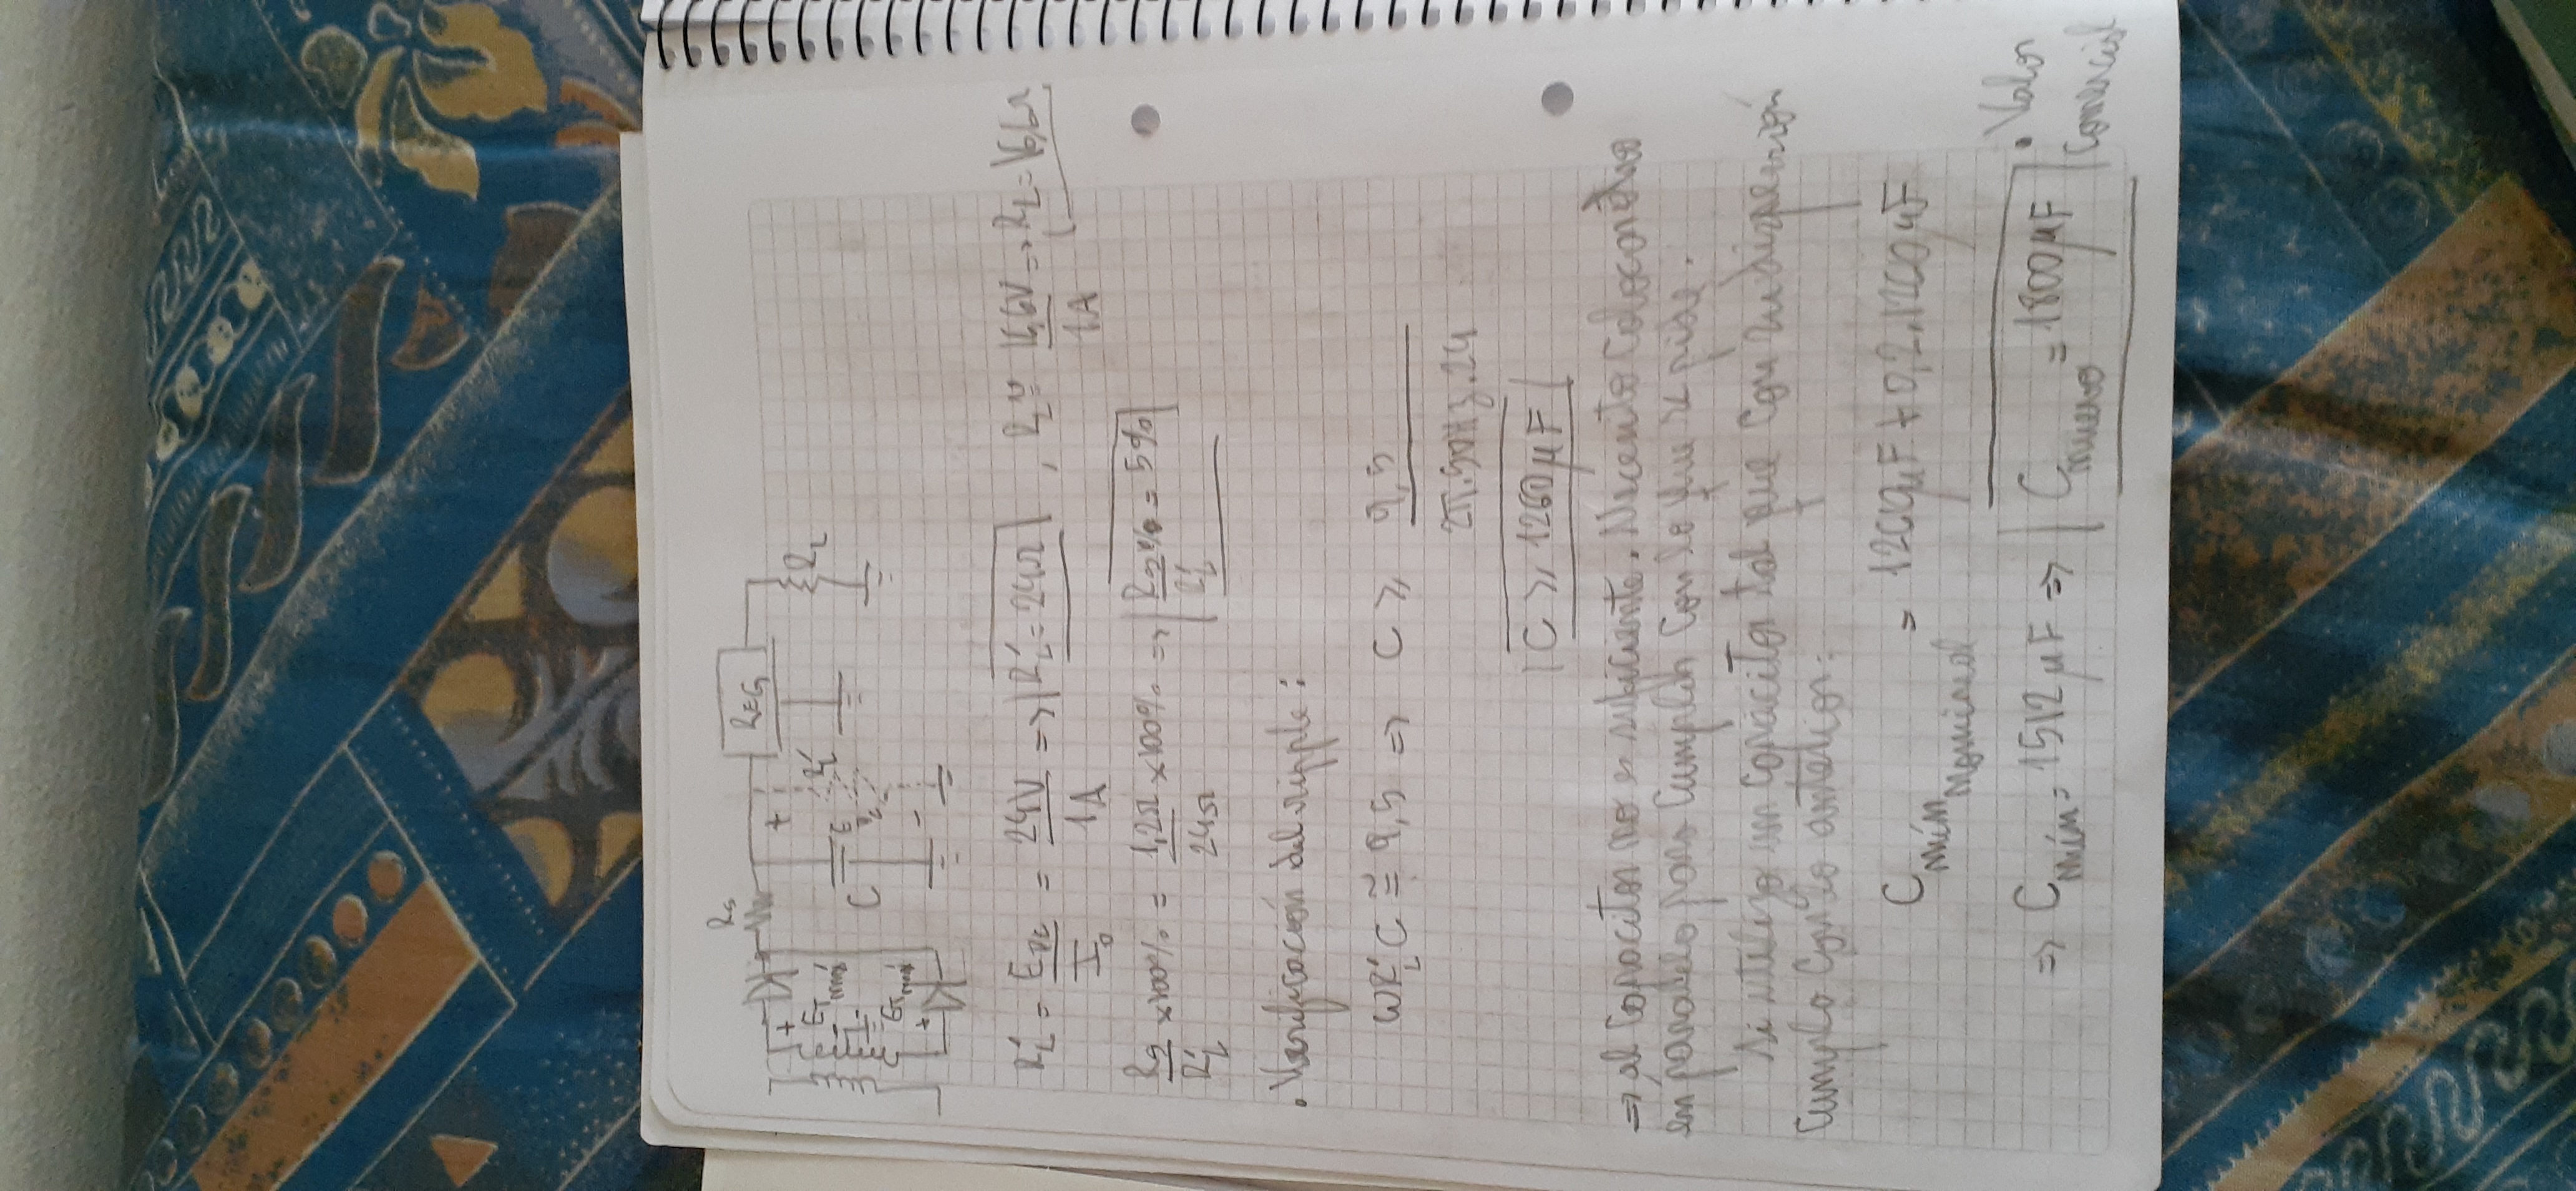 Rs
REG
+
+
ET máx
RL'
RL
C
E
DC
-
ET máx
+
-
RL' = EDC / Io = 24V / 1A => RL' = 24Ω , RL ≅ 16,6V / 1A => RL = 16,6Ω
Rs / RL' ×100% = 1,2Ω / 24Ω ×100% => Rs / RL' % = 5%
. Verificación del ripple :
ωRL'C ≅ 9,5 => C ≥ 9,5 / 2π.50Hz.24
C ≥ 1260μF
=> el capacitor no es suficiente. Necesito colocar otro
en paralelo para cumplir con lo que se pide.
Si utilizo un capacitor tal que con su dispersión
cumpla con lo anterior:
C mín nominal = 1260μF + 0,2.1260μF
=> C mín = 1512μF => C nuevo = 1800μF . Valor
comercial